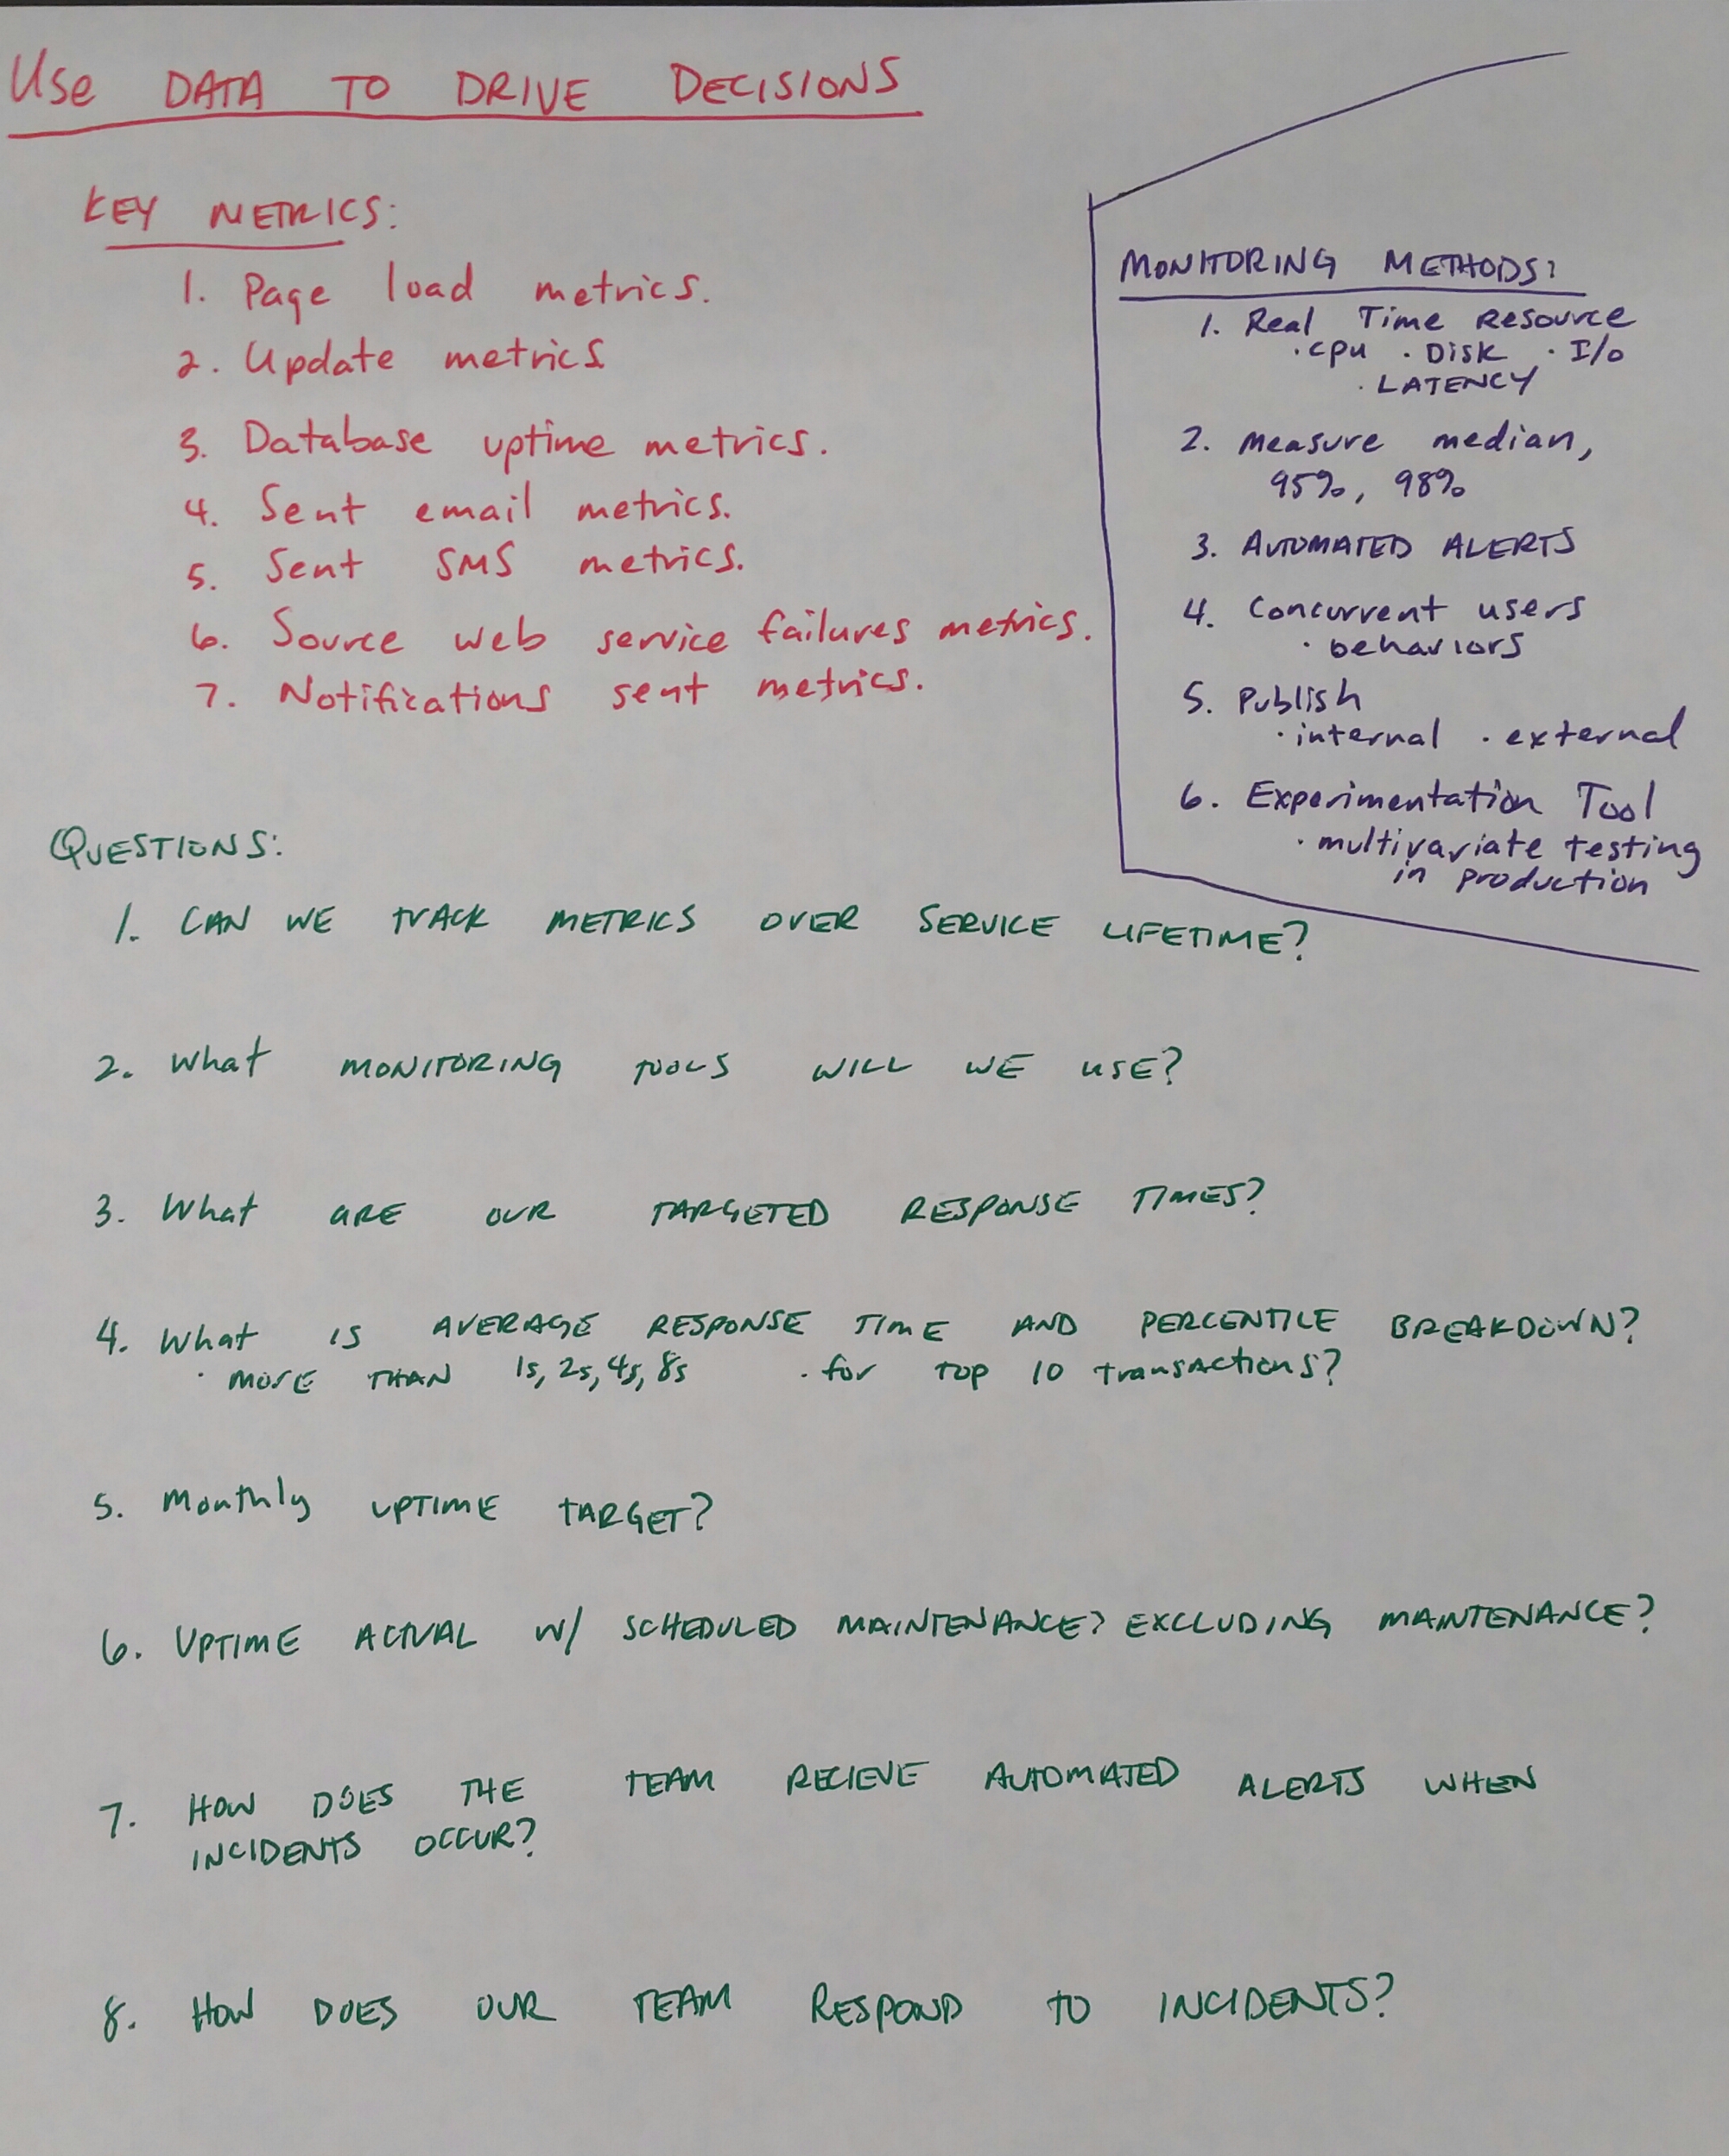 Use DATA TO DRIVE DECISIONS
KEY METRICS:
1. Page load metrics.
2. Update metrics
3. Database uptime metrics.
4. Sent email metrics.
5. Sent SMS metrics.
6. Source web service failures metrics.
7. Notifications sent metrics.
MONITORING METHODS:
1. Real Time Resource
· CPU · Disk · I/O
· LATENCY
2. Measure median,
95%, 98%
3. AUTOMATED ALERTS
4. Concurrent users
· behaviors
5. Publish
· internal · external
6. Experimentation Tool
· multivariate testing
in production
QUESTIONS:
1. CAN WE TRACK METRICS OVER SERVICE LIFETIME?
2. What MONITORING TOOLS WILL WE USE?
3. What ARE OUR TARGETED RESPONSE TIMES?
4. What IS AVERAGE RESPONSE TIME AND PERCENTILE BREAKDOWN?
· MORE THAN 1s, 2s, 4s, 8s · for TOP 10 Transactions?
5. Monthly UPTIME TARGET?
6. UPTIME ACTUAL W/ SCHEDULED MAINTENANCE? EXCLUDING MAINTENANCE?
7. HOW DOES THE TEAM RECIEVE AUTOMATED ALERTS WHEN
INCIDENTS OCCUR?
8. HOW DOES OUR TEAM RESPOND TO INCIDENTS?